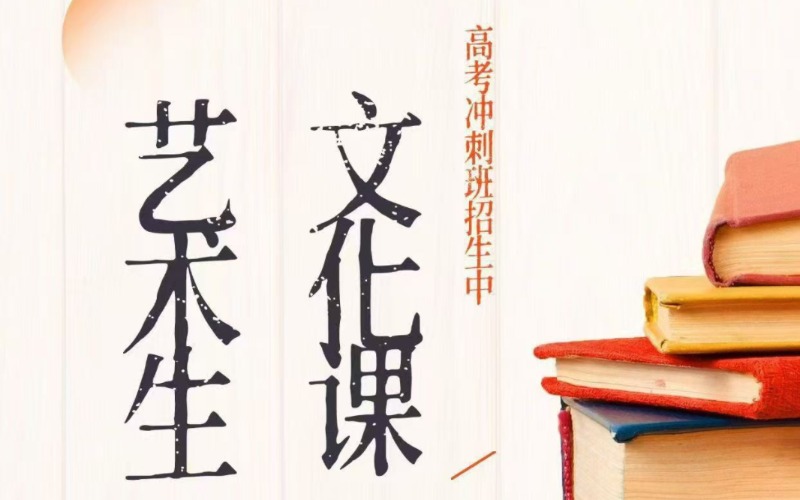 艺术生
文化课
高考冲刺班招生中